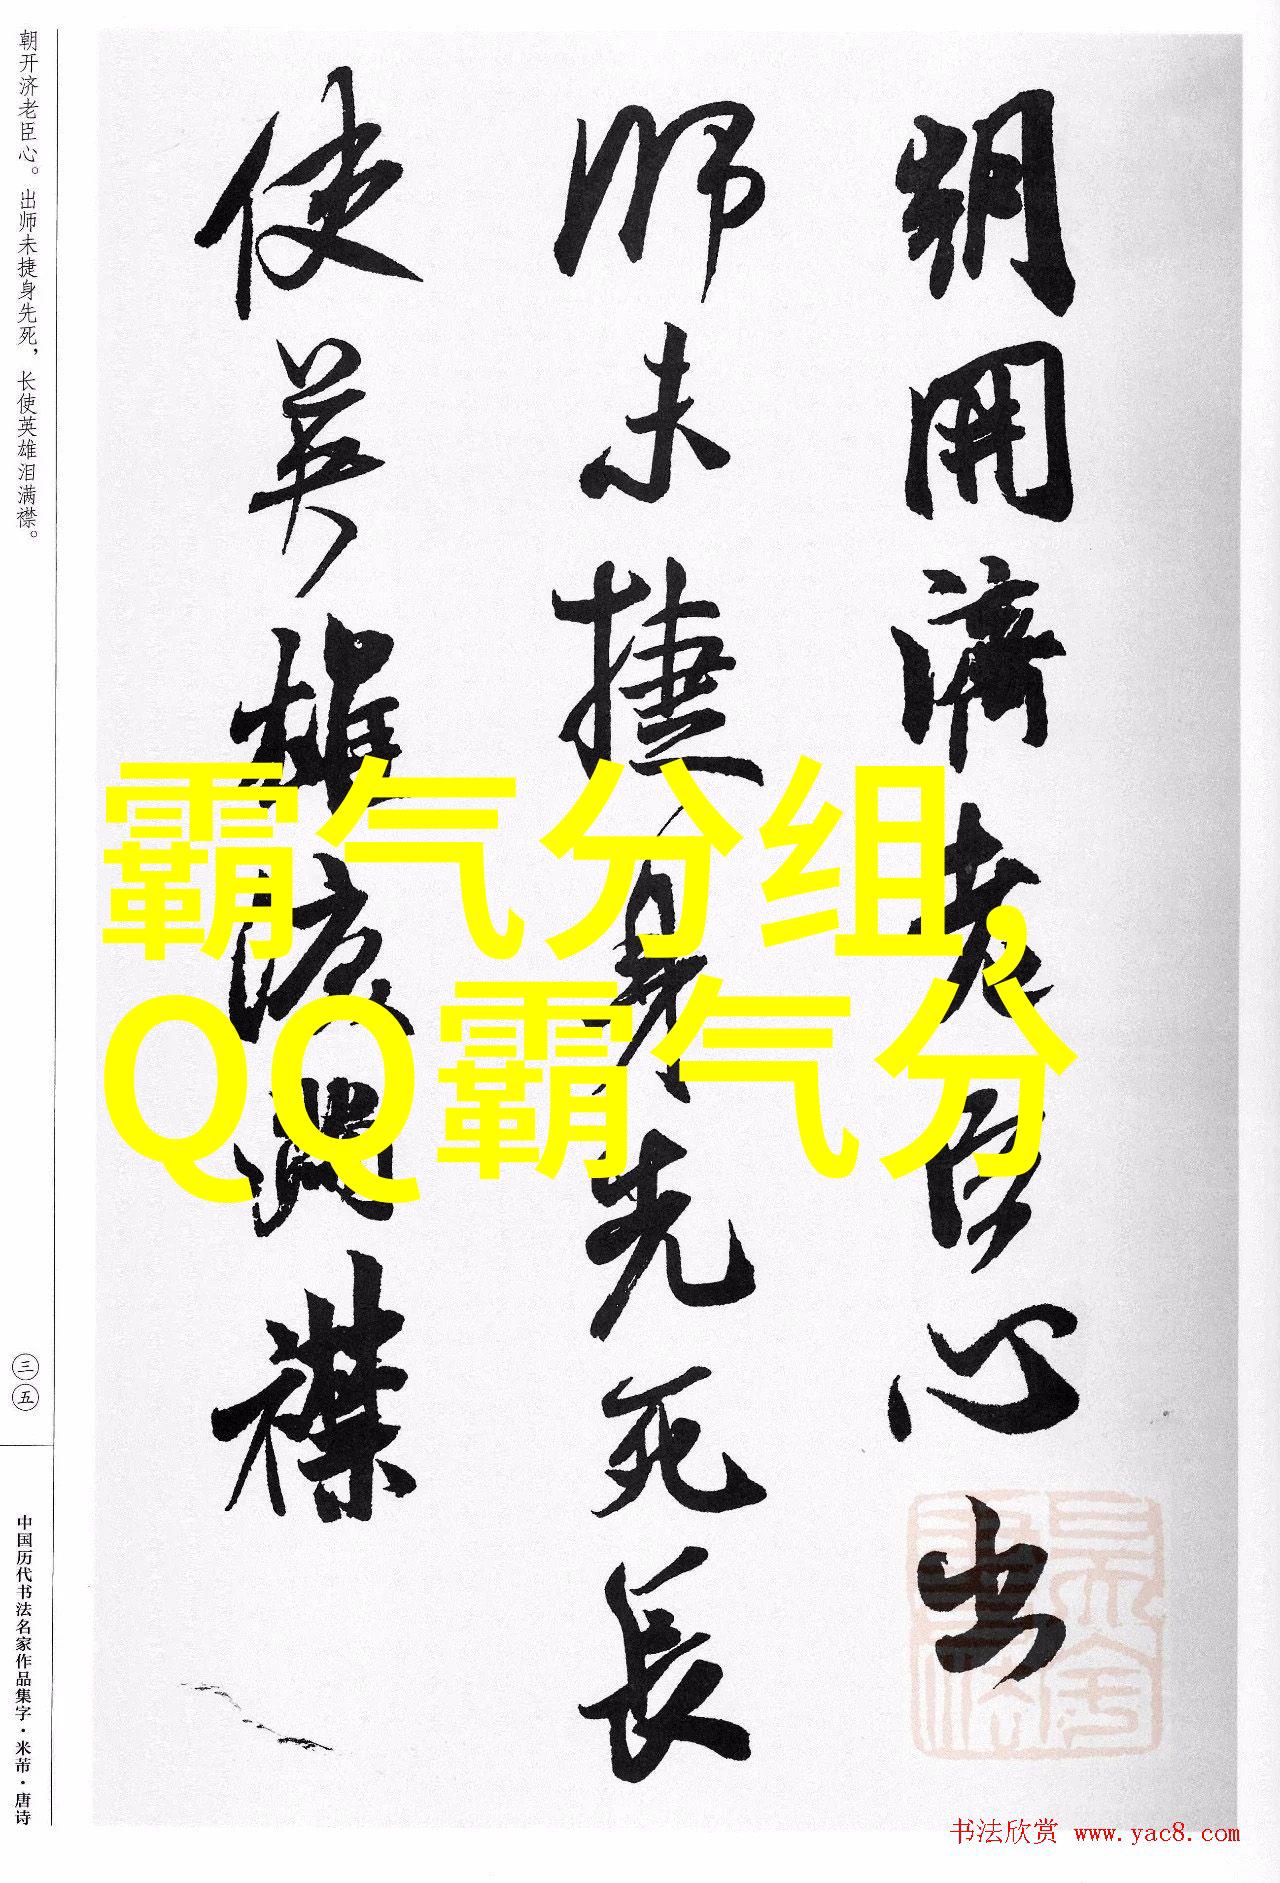 朝开济老臣心。出师未捷身先死，长使英雄泪满襟。
三五
中国历代书法名家作品集字·米芾·唐诗
朝開濟老臣心出
師未捷身先死長
使英雄淚滿襟
霸气分组,
QQ霸气分
书法欣赏 www.yac8.com